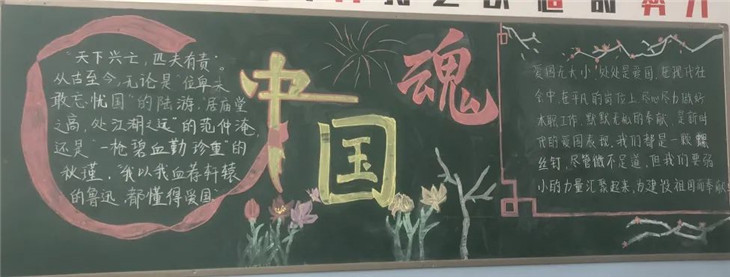 "天下兴亡，匹夫有责"。
从古至今，无论是"位卑未
敢忘忧国"的陆游，"居庙堂
之高，处江湖之远"的范仲淹，
还是"一枪碧血勤珍重"的
秋瑾，"我以我血荐轩辕"
的鲁迅，都懂得爱国。
中国魂
爱国无大小，处处是爱国，在现代社
会中，在平凡的岗位上，尽心尽力做好
本职工作，默默无私的奉献，是新时
代的爱国表现，我们都是一颗螺
丝钉，尽管微不足道，但我们要弱
小的力量汇聚起来，为建设祖国而奉献